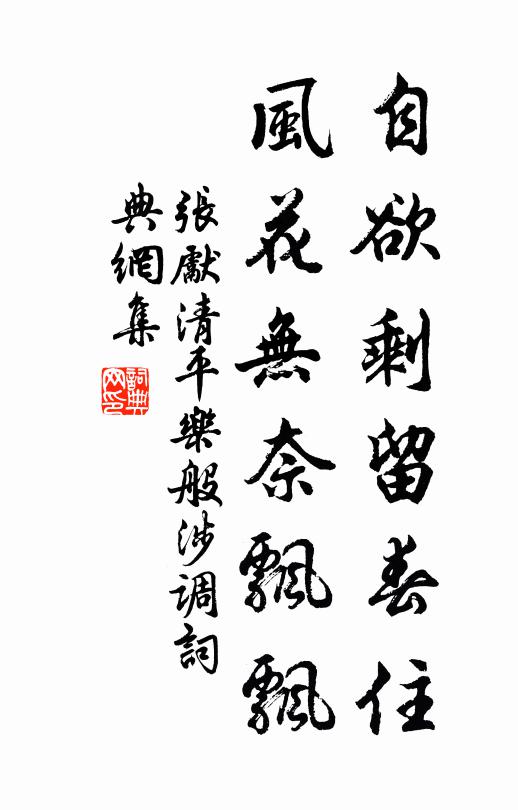 自欲剩留春住
風花無奈飄飄
張獻清平樂般涉调詞
典網集
詞典網印